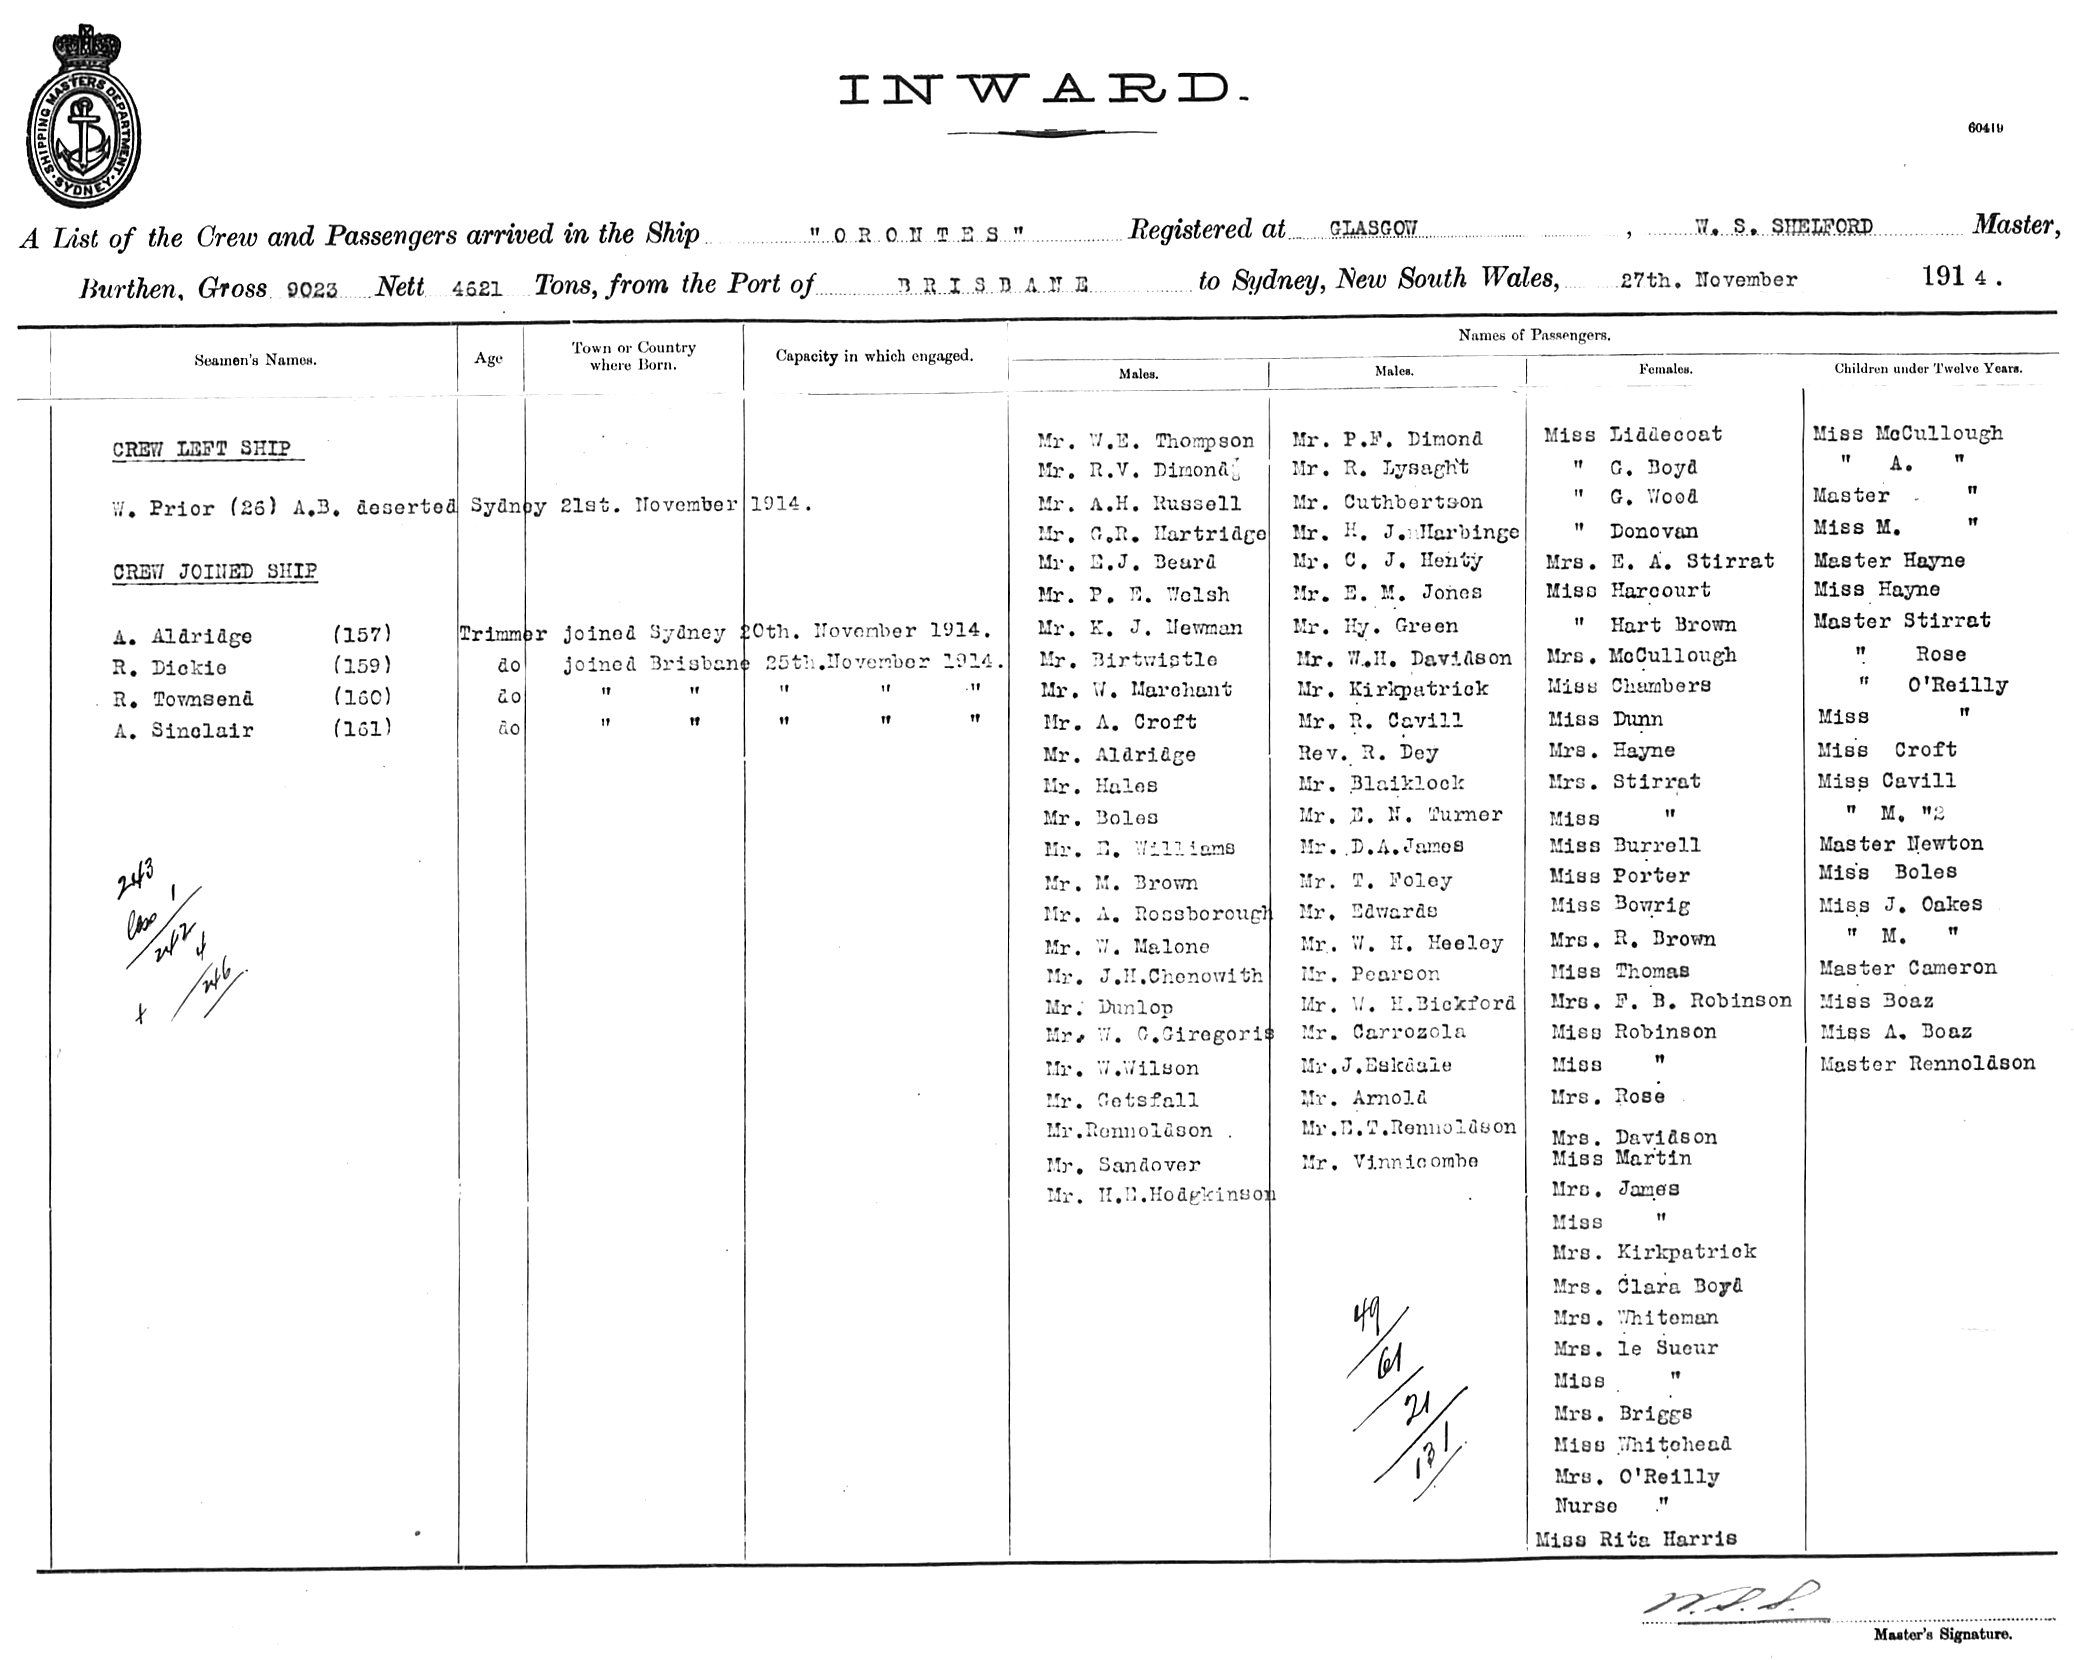 SHIPPING MASTERS DEPARTMENT. SYDNEY.
INWARD.
60419
A List of the Crew and Passengers arrived in the Ship "ORONTES" Registered at GLASGOW, W. S. SHELFORD Master,
Burthen, Gross 9023 Nett 4621 Tons, from the Port of BRISBANE to Sydney, New South Wales, 27th. November 1914.
Seamen's Names.
Age
Town or Country where Born.
Capacity in which engaged.
Names of Passengers.
Males.
Males.
Females.
Children under Twelve Years.
CREW LEFT SHIP
W. Prior (26) A.B. deserted Sydney 21st. November 1914.
CREW JOINED SHIP
A. Aldridge (157) Trimmer joined Sydney 20th. November 1914.
R. Dickie (159) do joined Brisbane 25th.November 1914.
R. Townsend (160) do " " " " "
A. Sinclair (161) do " " " " "
243
1
242
4
246
Mr. W.E. Thompson
Mr. R.V. Dimond
Mr. A.H. Russell
Mr. G.R. Hartridge
Mr. E.J. Beard
Mr. P. E. Welsh
Mr. K. J. Newman
Mr. Birtwistle
Mr. W. Marchant
Mr. A. Croft
Mr. Aldridge
Mr. Hales
Mr. Boles
Mr. E. Williams
Mr. M. Brown
Mr. A. Rossborough
Mr. W. Malone
Mr. J.H.Chenowith
Mr. Dunlop
Mr. W. G.Giregoris
Mr. W.Wilson
Mr. Getsfall
Mr.Rennoldson
Mr. Sandover
Mr. H.E.Hodgkinson
Mr. P.F. Dimond
Mr. R. Lysaght
Mr. Cuthbertson
Mr. H. J. Harbinge
Mr. C. J. Henty
Mr. E. M. Jones
Mr. Hy. Green
Mr. W.H. Davidson
Mr. Kirkpatrick
Mr. R. Cavill
Rev. R. Dey
Mr. Blaiklock
Mr. E. N. Turner
Mr. D.A.James
Mr. T. Foley
Mr. Edwards
Mr. W. H. Heeley
Mr. Pearson
Mr. W. H.Bickford
Mr. Carrozola
Mr.J.Eskdale
Mr. Arnold
Mr.E.T.Rennoldson
Mr. Vinnicombe
49
61
21
131
Miss Liddecoat
" G. Boyd
" G. Wood
" Donovan
Mrs. E. A. Stirrat
Miss Harcourt
" Hart Brown
Mrs. McCullough
Miss Chambers
Miss Dunn
Mrs. Hayne
Mrs. Stirrat
Miss "
Miss Burrell
Miss Porter
Miss Bowrig
Mrs. R. Brown
Miss Thomas
Mrs. F. B. Robinson
Miss Robinson
Miss "
Mrs. Rose
Mrs. Davidson
Miss Martin
Mrs. James
Miss "
Mrs. Kirkpatrick
Mrs. Clara Boyd
Mrs. Whiteman
Mrs. le Sueur
Miss "
Mrs. Briggs
Miss Whitehead
Mrs. O'Reilly
Nurse "
Miss Rita Harris
Miss McCullough
" A. "
Master "
Miss M. "
Master Hayne
Miss Hayne
Master Stirrat
" Rose
" O'Reilly
Miss "
Miss Croft
Miss Cavill
" M. "2
Master Newton
Miss Boles
Miss J. Oakes
" M. "
Master Cameron
Miss Boaz
Miss A. Boaz
Master Rennoldson
W.S.S.
Master's Signature.